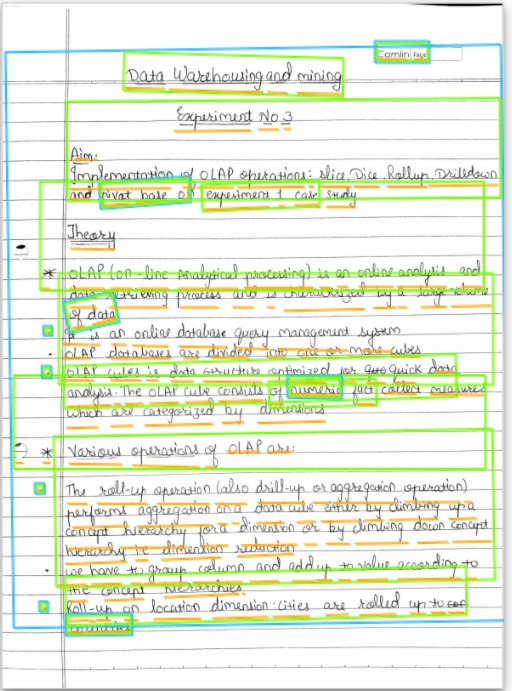 Camlin Page
Data Warehousing and mining
Experiment No 3
Aim:
Implementation of OLAP operations: slice, Dice, Rollup, Drilldown
and pivot base on experiment 1 case study
Theory
* OLAP (on-line Analytical processing) is an online analysis and
data retrieving process and is characterized by a large volume
of data
It is an online database query management system
• OLAP databases are divided into one or more cubes
OLAP cubes is data structure optimized for quick data
analysis. The OLAP cube consists of numeric fact collect measures
which are categorized by dimensions
* Various operations of OLAP are:
The roll-up operation (also drill-up or aggregation operation)
performs aggregation on a data cube either by climbing up a
concept hierarchy for a dimension or by climbing down concept
hierarchy i.e dimension reduction
• we have to group column and add up to value according to
the concept hierarchies.
Roll-up on location dimension: cities are rolled up to
countries